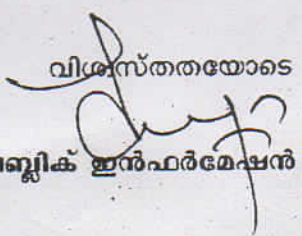 വിശ്വസ്തതയോടെ
ബ്ലിക് ഇൻഫർമേഷൻ